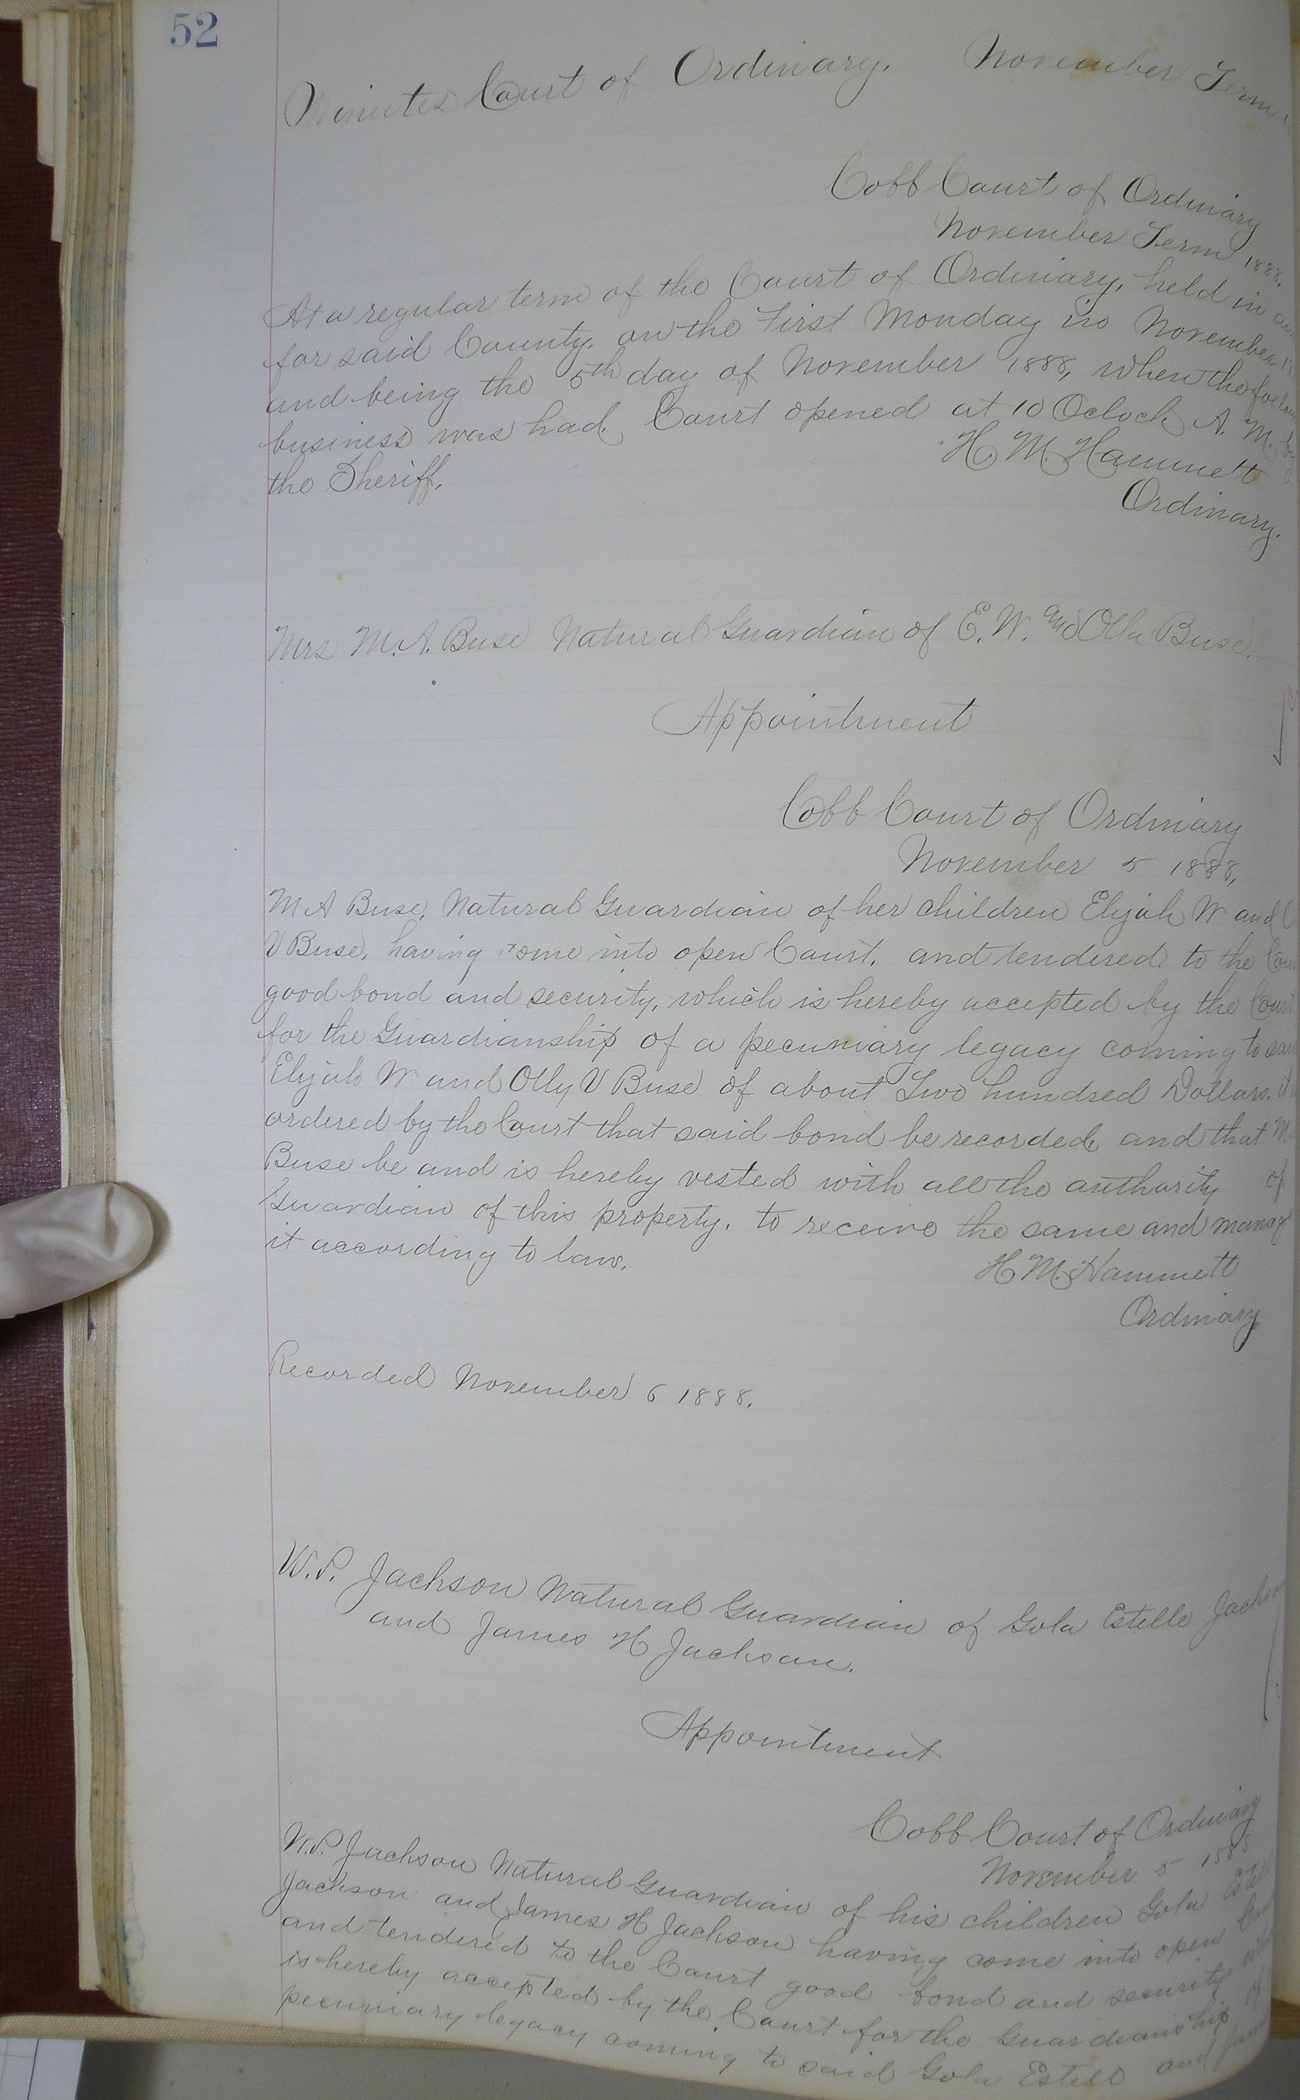 52
Minutes Court of Ordinary. November Term
Cobb Court of Ordinary
November Term 1888.
At a regular term of the Court of Ordinary, held in and
for said County, on the First Monday in November
and being the 5th day of November 1888, when the
business was had. Court opened at 10 Oclock A. M. by
the Sheriff.
H. M. Hammett
Ordinary.
Mrs M. A. Buse Natural Guardian of E. W. and Olla Buse.
Appointment
Cobb Court of Ordinary
November 5 1888,
M A Buse, Natural Guardian of her children Elijah W and
V Buse, having come into open Court, and tendered to the
good bond and security, which is hereby accepted by the Court
for the Guardianship of a pecuniary legacy coming to
Elijah W and Olly V Buse of about Two hundred Dollars,
ordered by the Court that said bond be recorded and that M
Buse be and is hereby vested with all the authority of
Guardian of this property, to receive the same and manage
it according to law.
H M. Hammett
Ordinary
Recorded November 6 1888.
W. P. Jackson Natural Guardian of Gola Estelle Jackson
and James H Jackson.
Appointment
Cobb Court of Ordinary
November 5 1888
W. P. Jackson Natural Guardian of his children Gola
Jackson and James H Jackson having come into open
and tendered to the Court good bond and security
is hereby accepted by the Court for the Guardianship of
pecuniary legacy coming to said Gola Estell and